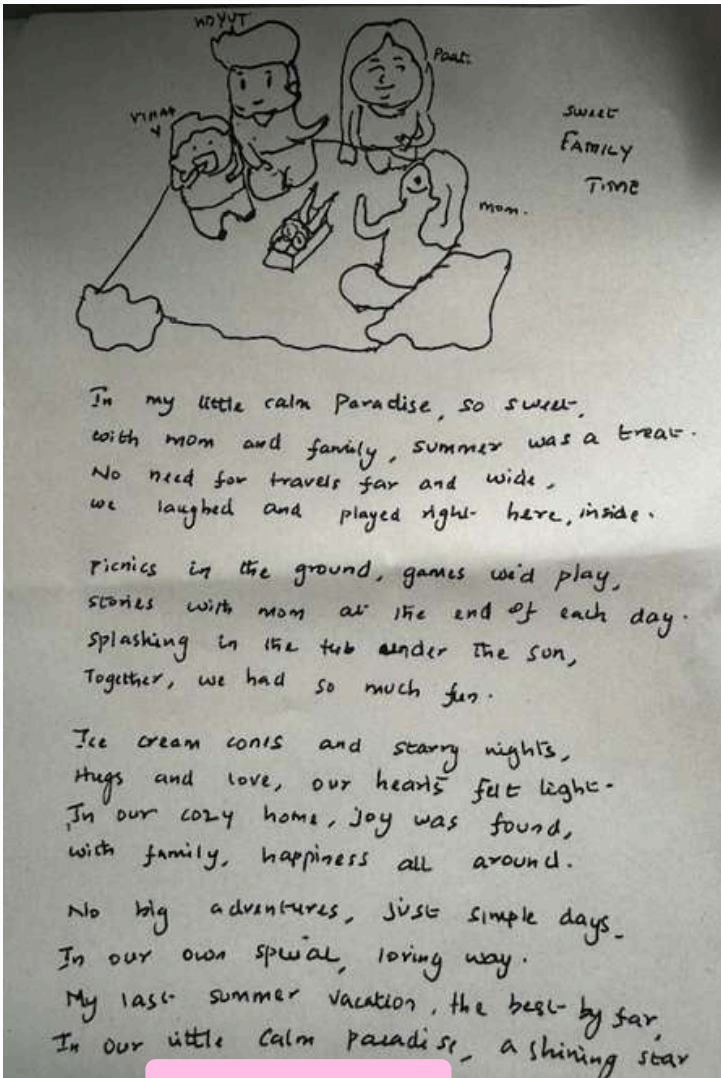 Paati
SWEET
FAMILY
TIME
mom.
In my little calm Paradise, so sweet,
with mom and family, summer was a treat.
No need for travels far and wide,
we laughed and played right here, inside.
Picnics in the ground, games we'd play,
stories with mom at the end of each day.
splashing in the tub under the sun,
Together, we had so much fun.
Ice cream cones and starry nights,
Hugs and love, our hearts felt light.
In our cozy home, joy was found,
with family, happiness all around.
No big adventures, just simple days
In our own special, loving way.
My last summer vacation, the best by far,
In our little calm paradise, a shining star